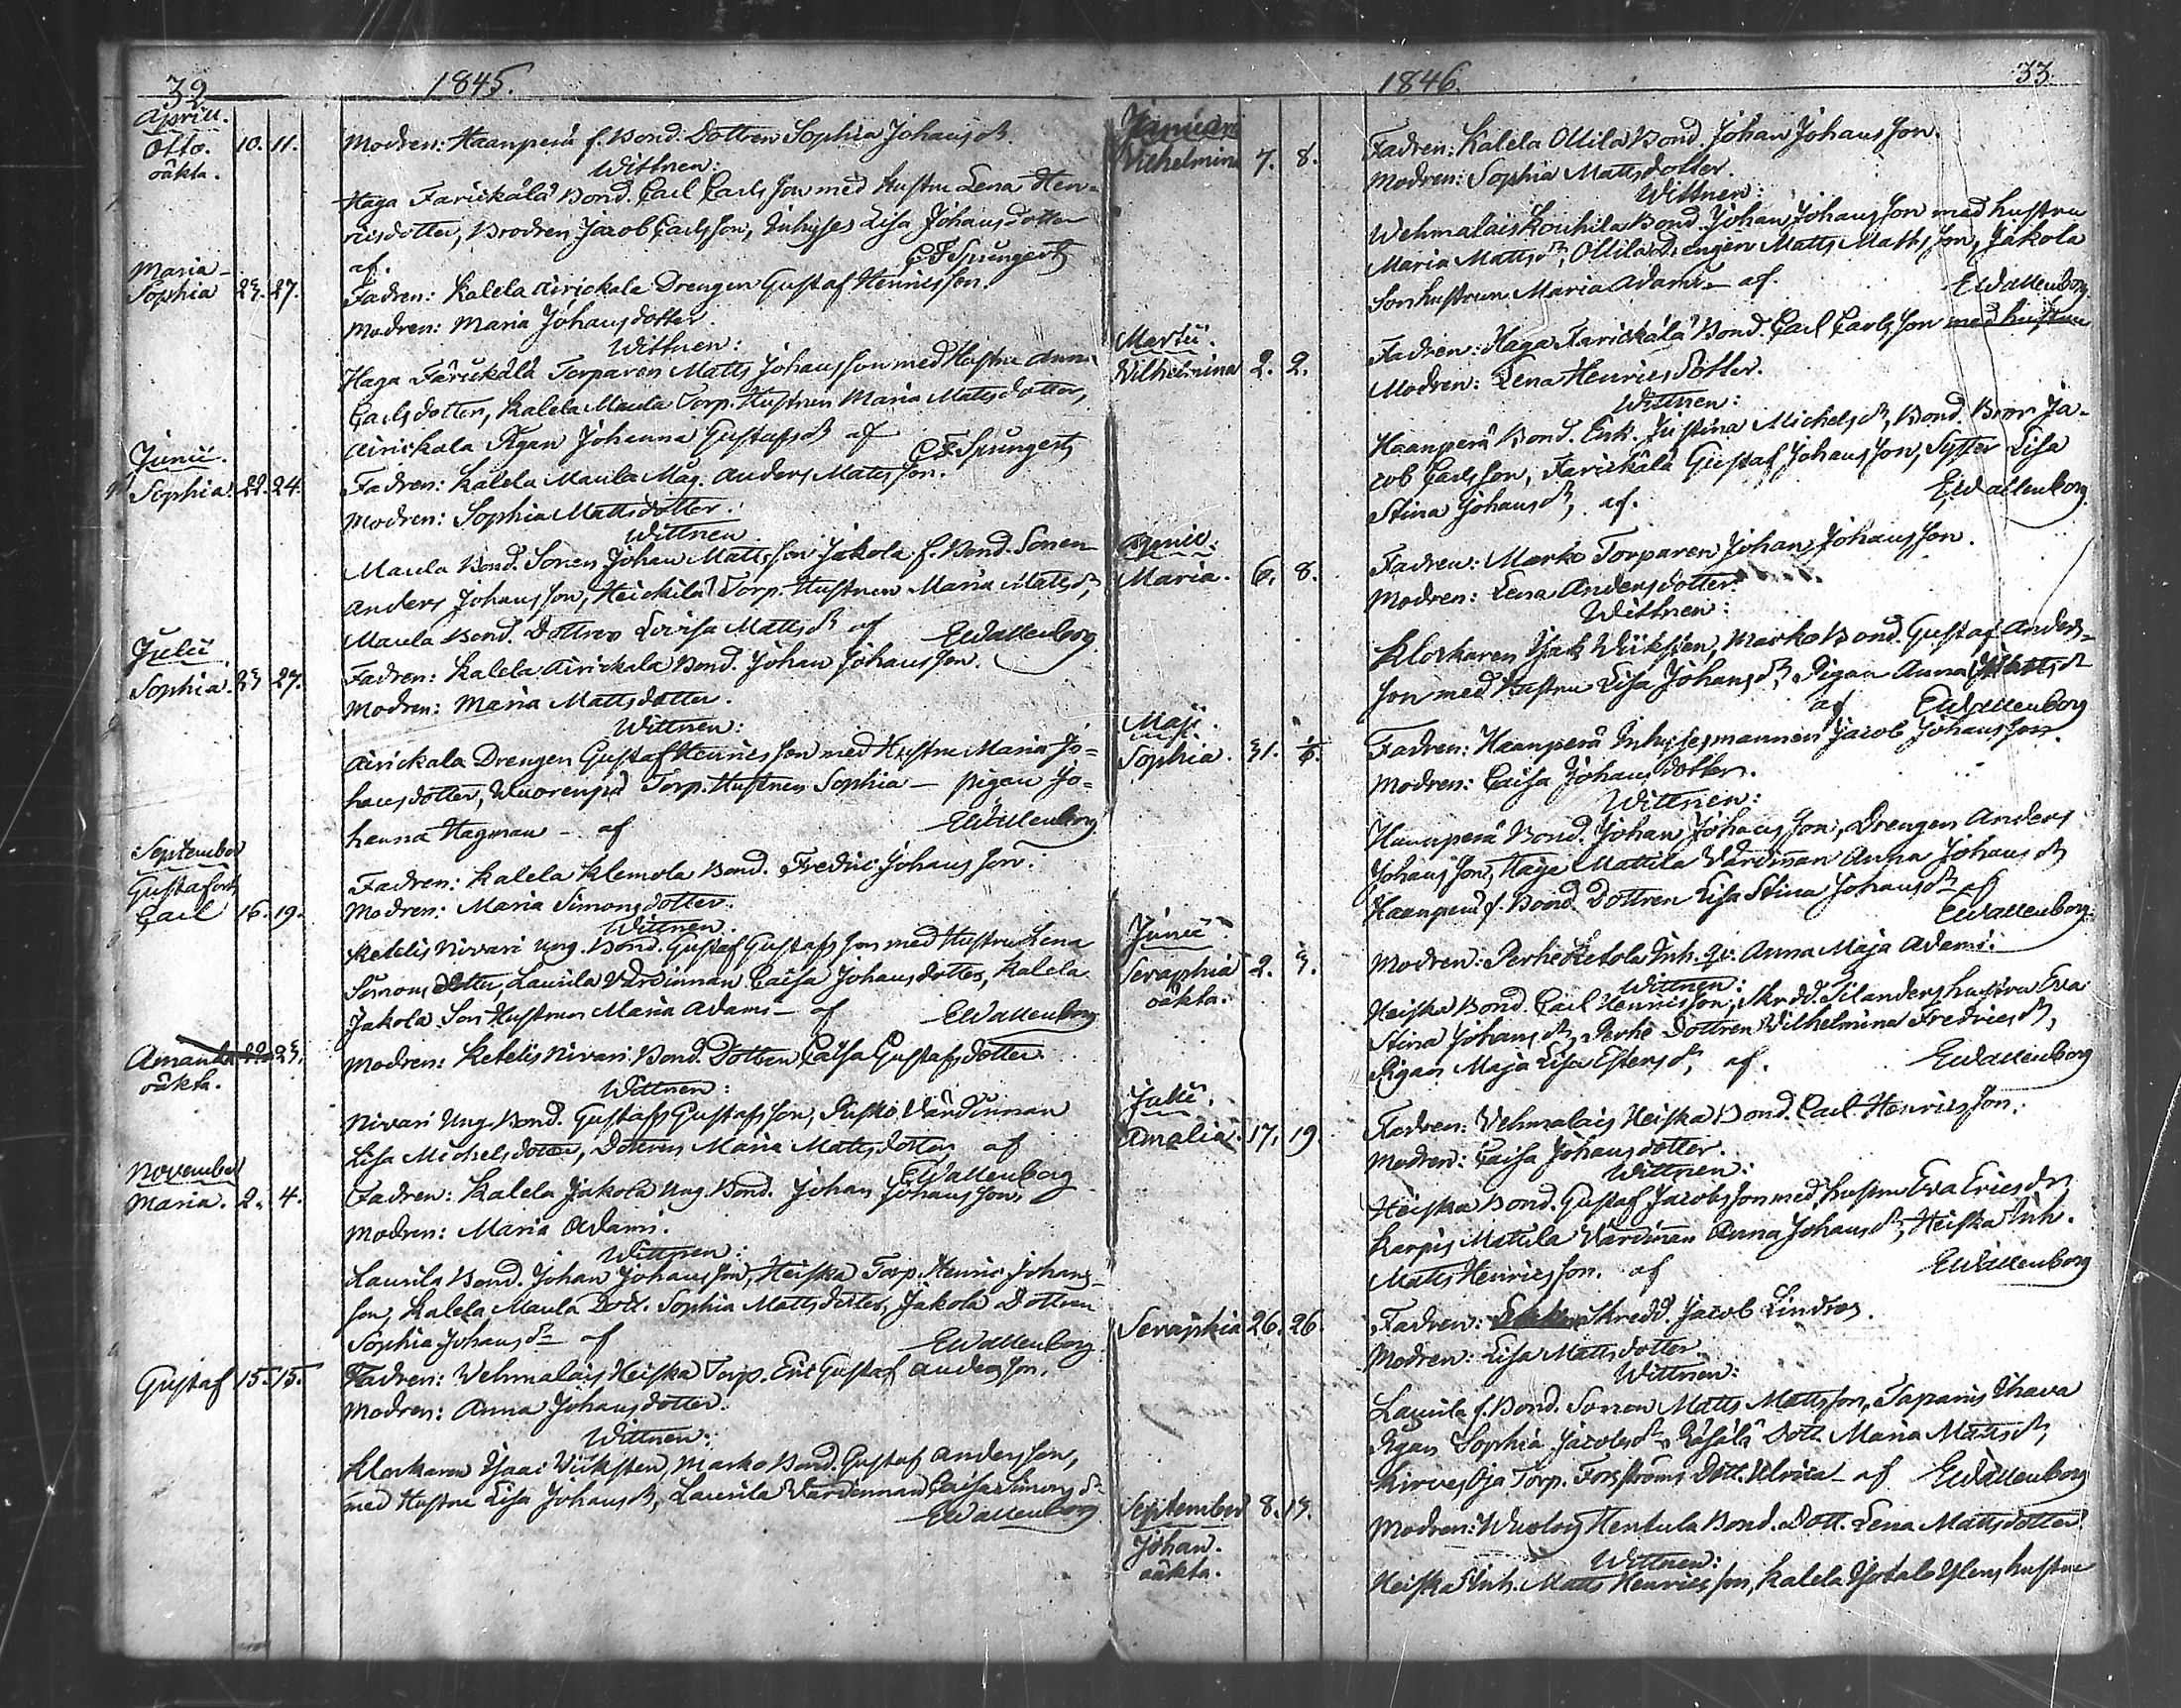 32
1845.
Aprill.
Otto. 10. 11. Modren: Haanperä f. Bond. Dottren Sophia Johansdr
oäkta.
Wittnen:
Haga Farickala Bond. Carl Carlsson med hustru Lena Hen-
ricsdotter, Brodren Jacob Carlsson, Inhyses Lisa Johansdotter
af. CFSpungert
Maria
Sophia 23. 27. Fadren: Kalela Airickala Drengen Gustaf Henricsson.
Modren: Maria Johansdotter.
Wittnen:
Haga Färickälä Torparen Matts Johansson med Hustru Anna
Carlsdotter, Kalela Maula Torp. Hustrun Maria Mattsdotter,
Airickala Pigan Johanna Gustafsdr af CFSpungert
Junii.
Sophia. 22. 24. Fadren: Kalela Maula Måg. Anders Matsson.
Modren: Sophia Mattsdotter.
Wittnen
Maula Bond. Sonen Johan Mattsson Jakola f. Bond. Sonen
Anders Johansson, Heickilä Torp. Hustrun Maria Matsdr,
Maula Bond. Dottren Lovisa Mattsdr af EWallenborg
Julii
Sophia. 23 27. Fadren: Kalela Airickala Bond. Johan Johansson.
Modren: Maria Mattsdotter.
Wittnen:
Airickala Drengen Gustaf Henricsson med Hustru Maria Jo-
hansdotter, Wuorenpä Torp. Hustrun Sophia — pigan Jo-
hanna Hagman — af EWallenborg
September
Gustaf och
Carl 16. 19. Fadren: Kalela Klemola Bond. Fredric Johansson.
Modren: Maria Simonsdotter.
Wittnen.
Ketelis Nivari Ung. Bond. Gustaf Gustafsson med Hustru Lena
Simonsdotter, Laurila Värdinnan Caisa Johansdotter, Kalela
Jakola Son Hustrun Maria Adams — af EWallenborg
Amanda 22. 23. Modren: Ketelis Nivari Bond. Dottren Caisa Gustafsdotter.
oäkta.
Wittnen:
Nivari Ung. Bond. Gustaf Gustafsson, Värdinnan
Lisa Michelsdotter, Dottren Maria Mattsdotter af
EWallenborg
November
Maria. 2. 4. Fadren: Kalela Jakola Ung. Bond. Johan Johansson.
Modren: Maria Adams.
Wittnen:
Laurila Bond. Johan Johansson, Heiska Torp. Henric Johans-
son, Kalela Maula Dott. Sophia Mattsdotter, Jakola Dottren
Sophia Johansdr af EWallenborg
Gustaf 15. 15. Fadren: Vehmalais Heiska Torp. Eric Gustaf Andersson.
Modren: Anna Johansdotter.
Wittnen:
Klockaren Isaac Wiiksten, Marko Bond. Gustaf Andersson,
med Hustru Lisa Johansdr, Laurila Värdinnan Caisa Simonsdr
EWallenborg
1846.
33
Januari
Wilhelmina 7. 8. Fadren: Kalela Ollila Bond. Johan Johansson.
Modren: Sophia Mattsdotter.
Wittnen:
Wehmalais Kouhila Bond. Johan Johansson med hustru
Maria Mattsdr, Ollila Drengen Matts Mattsson, Jakola
Sonhustrun Maria Adams — af. EWallenborg.
Martii.
Wilhelmina 2. 2. Fadren: Haga Farickälä Bond. Carl Carlsson med hustru
Modren: Lena Henricsdotter.
Wittnen:
Haanperä Bond. Enk. Justina Michelsdr, Bond. Bror Ja-
cob Carlsson, Farickälä Gustaf Johansson, Syster Lisa
Stina Johansdr, af. EWallenborg
Aprill.
Maria. 6. 8. Fadren: Marko Torparen Johan Johansson.
Modren: Lena Andersdotter.
Wittnen:
Klockaren Isak Wiiksten, Marko Bond. Gustaf Anders-
son med Hustru Lisa Johansdr, Pigan Anna Mattsdr
af EWallenborg
Maji.
Sophia. 31. 1/6. Fadren: Haanperä Inhysesmannen Jacob Johansson.
Modren: Caisa Johansdotter.
Wittnen:
Haanperä Bond. Johan Johansson, Drengen Anders
Johansson, Haga Mattila Värdinnan Anna Johansdr
Haanperä f. Bond. Dottren Lisa Stina Johansdr af
EWallenborg.
Junii
Seraphia 2. 3. Modren: Perhe Ketola Inh. qv. Anna Maja Adams.
oäkta.
Wittnen:
Heiska Bond. Carl Henricsson, Skrädd. Silanders hustru Eva
Stina Johansdr, Perhe Dottren Wilhelmina Fredricsdr,
Pigan Maja Lisa Estersdr, af. EWallenborg
Julii.
Amalia. 17. 19. Fadren: Vehmalais Heiska Bond. Carl Henricsson.
Modren: Caisa Johansdotter.
Wittnen:
Heiska Bond. Gustaf Jacobsson med hustru Eva Ericsdr
Karpis Mattila Värdinnan Anna Johansdr, Heiska Inh.
Matts Henricsson. af EWallenborg
Seraphia 26. 26. Fadren: Skredd. Jacob Lindros.
Modren: Lisa Mattsdotter.
Wittnen:
Laurila f. Bond. Sonen Matts Mattsson, Tapanis Ihava
Pigan Sophia Jacobsdr, Dott. Maria Mattsdr,
Kirves Oja Torp. Forsströms Dott. Ulrica — af EWallenborg
September 8. 13. Modren: Hentula Bond. Dott. Lena Mattsdotter.
Johan.
oäkta.
Wittnen:
Heiska Inh. Matts Henricsson, Kalela hustru